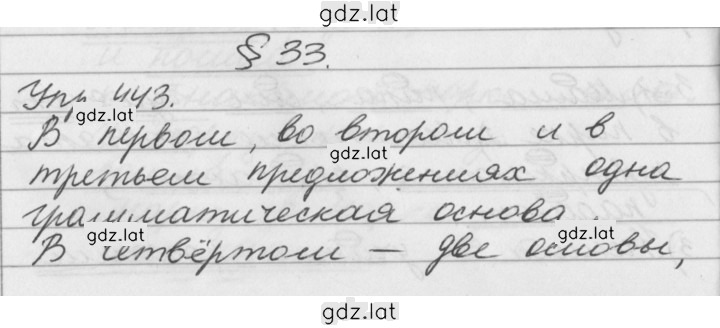 gdz.lat
§ 33.
Упр. 443.
gdz.lat
В первом, во втором и в
gdz.lat
третьем предложениях одна
gdz.lat
грамматическая основа.
gdz.lat
gdz.lat
В четвёртом — две основы,
gdz.lat